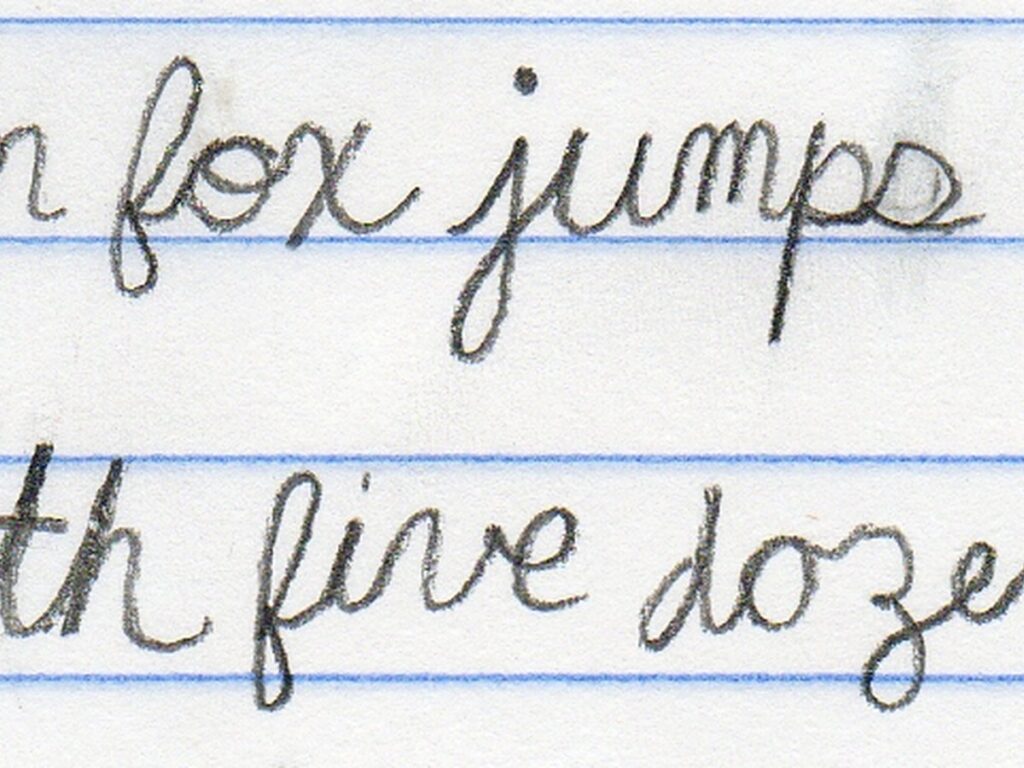 n fox jumps
th five doze